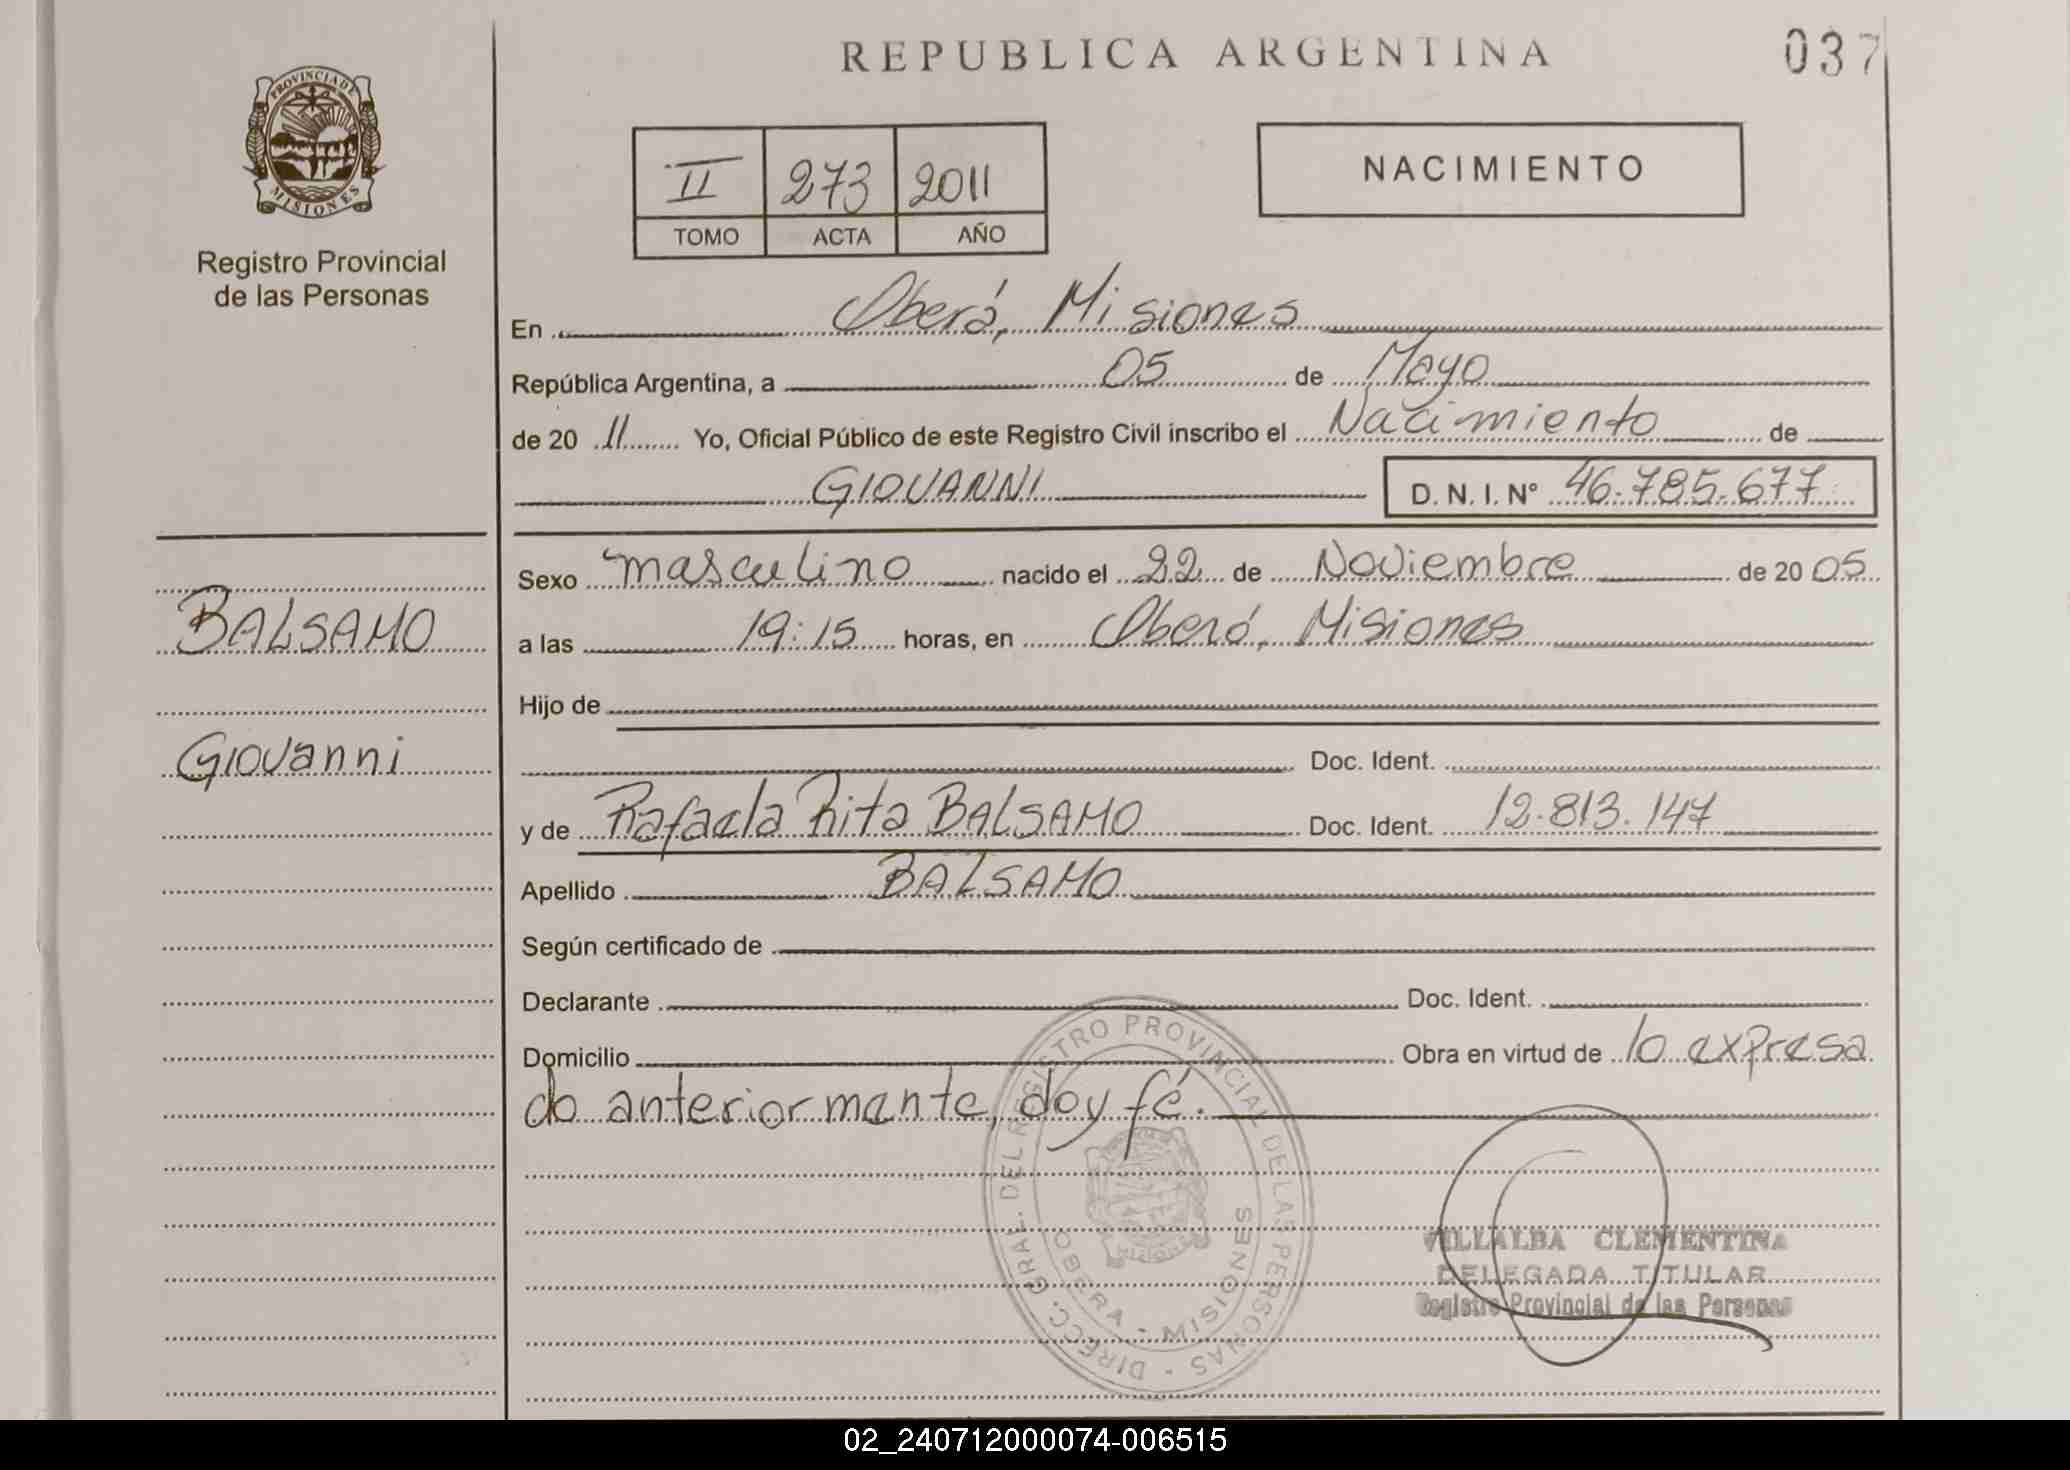 REPUBLICA ARGENTINA
037
PROVINCIA DE
MISIONES
Registro Provincial
de las Personas
II 273 2011
TOMO ACTA AÑO
NACIMIENTO
En Oberá, Misiones
República Argentina, a 05 de Mayo
de 20 11 Yo, Oficial Público de este Registro Civil inscribo el Nacimiento de
GIOVANNI D. N. I. Nº 46.785.677
Sexo masculino nacido el 22 de Noviembre de 20 05
BALSAMO
a las 19:15 horas, en Oberá, Misiones
Hijo de
Giovanni
Doc. Ident.
y de Rafaela Rita BALSAMO Doc. Ident. 12.813.147
Apellido BALSAMO
Según certificado de
Declarante Doc. Ident.
Domicilio Obra en virtud de lo expresa
do anteriormente, doy fé.
DIRECC. GRAL. DEL REGISTRO PROVINCIAL DE LAS PERSONAS -
OBERA - MISIONES
MISIONES
VILLALBA CLEMENTINA
DELEGADA TITULAR
Registro Provincial de las Personas
02_240712000074-006515